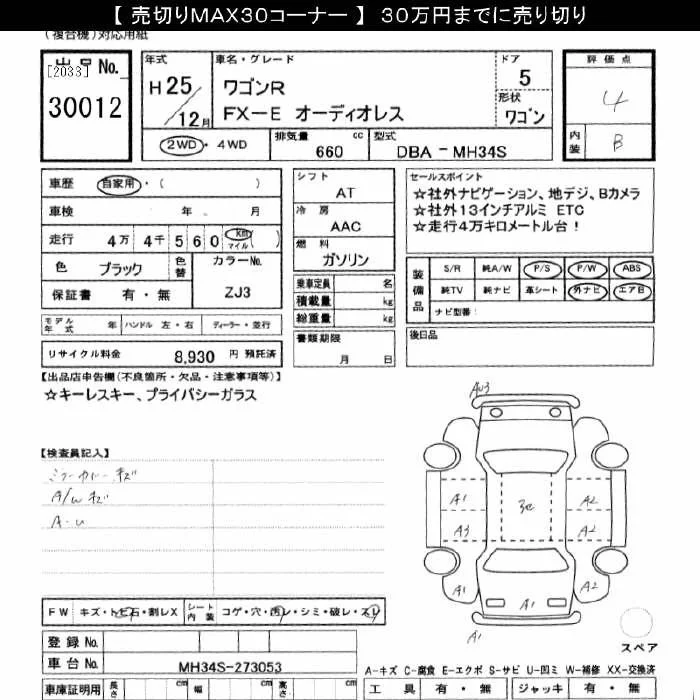 【 売切りMAX30コーナー 】 30万円までに売り切り
(複合機)対応用紙
出品No. [2033] 30012
年式 H25/12月
車名・グレード ワゴンR FX-E オーディオレス
ドア 5
形状 ワゴン
評価点 4
内装 B
2WD・4WD
排気量 660 cc
型式 DBA-MH34S
車歴 自家用・( )
車検 年 . 月
走行 4万 4千 560 Km マイル ( )
色 ブラック 色替 カラーNo. ZJ3
保証書 有・無
シフト AT
冷房 AAC
燃料 ガソリン
乗車定員 名
積載量 kg
総重量 kg
書類期限 月 日
セールスポイント
☆社外ナビゲーション、地デジ、Bカメラ
☆社外13インチアルミ ETC
☆走行4万キロメートル台!
装備品 S/R 純A/W P/S P/W ABS
純TV 純ナビ 革シート 外ナビ エアB
ナビ型番:
後日品
モデル年式 年 ハンドル 左・右 ディーラー・並行
リサイクル料金 8,930 円 預託済
【出品店申告欄(不良箇所・欠品・注意事項等)】
☆キーレスキー、プライバシーガラス
【検査員記入】
ミラーカバーキズ
A/Wキズ
A-U
AU3
A1 A2
A3 A2
A1 A1 A2
A1
FW キズ・トビ石・割レX シート内装 コゲ・穴・汚レ・シミ・破レ・スレ
登録No.
車台No. MH34S-273053
スペア
A-キズ C-腐食 E-エクボ S-サビ U-凹ミ W-補修 XX-交換済
車庫証明用 長さ cm 幅 cm 高さ cm
工具 有・無 ジャッキ 有・無